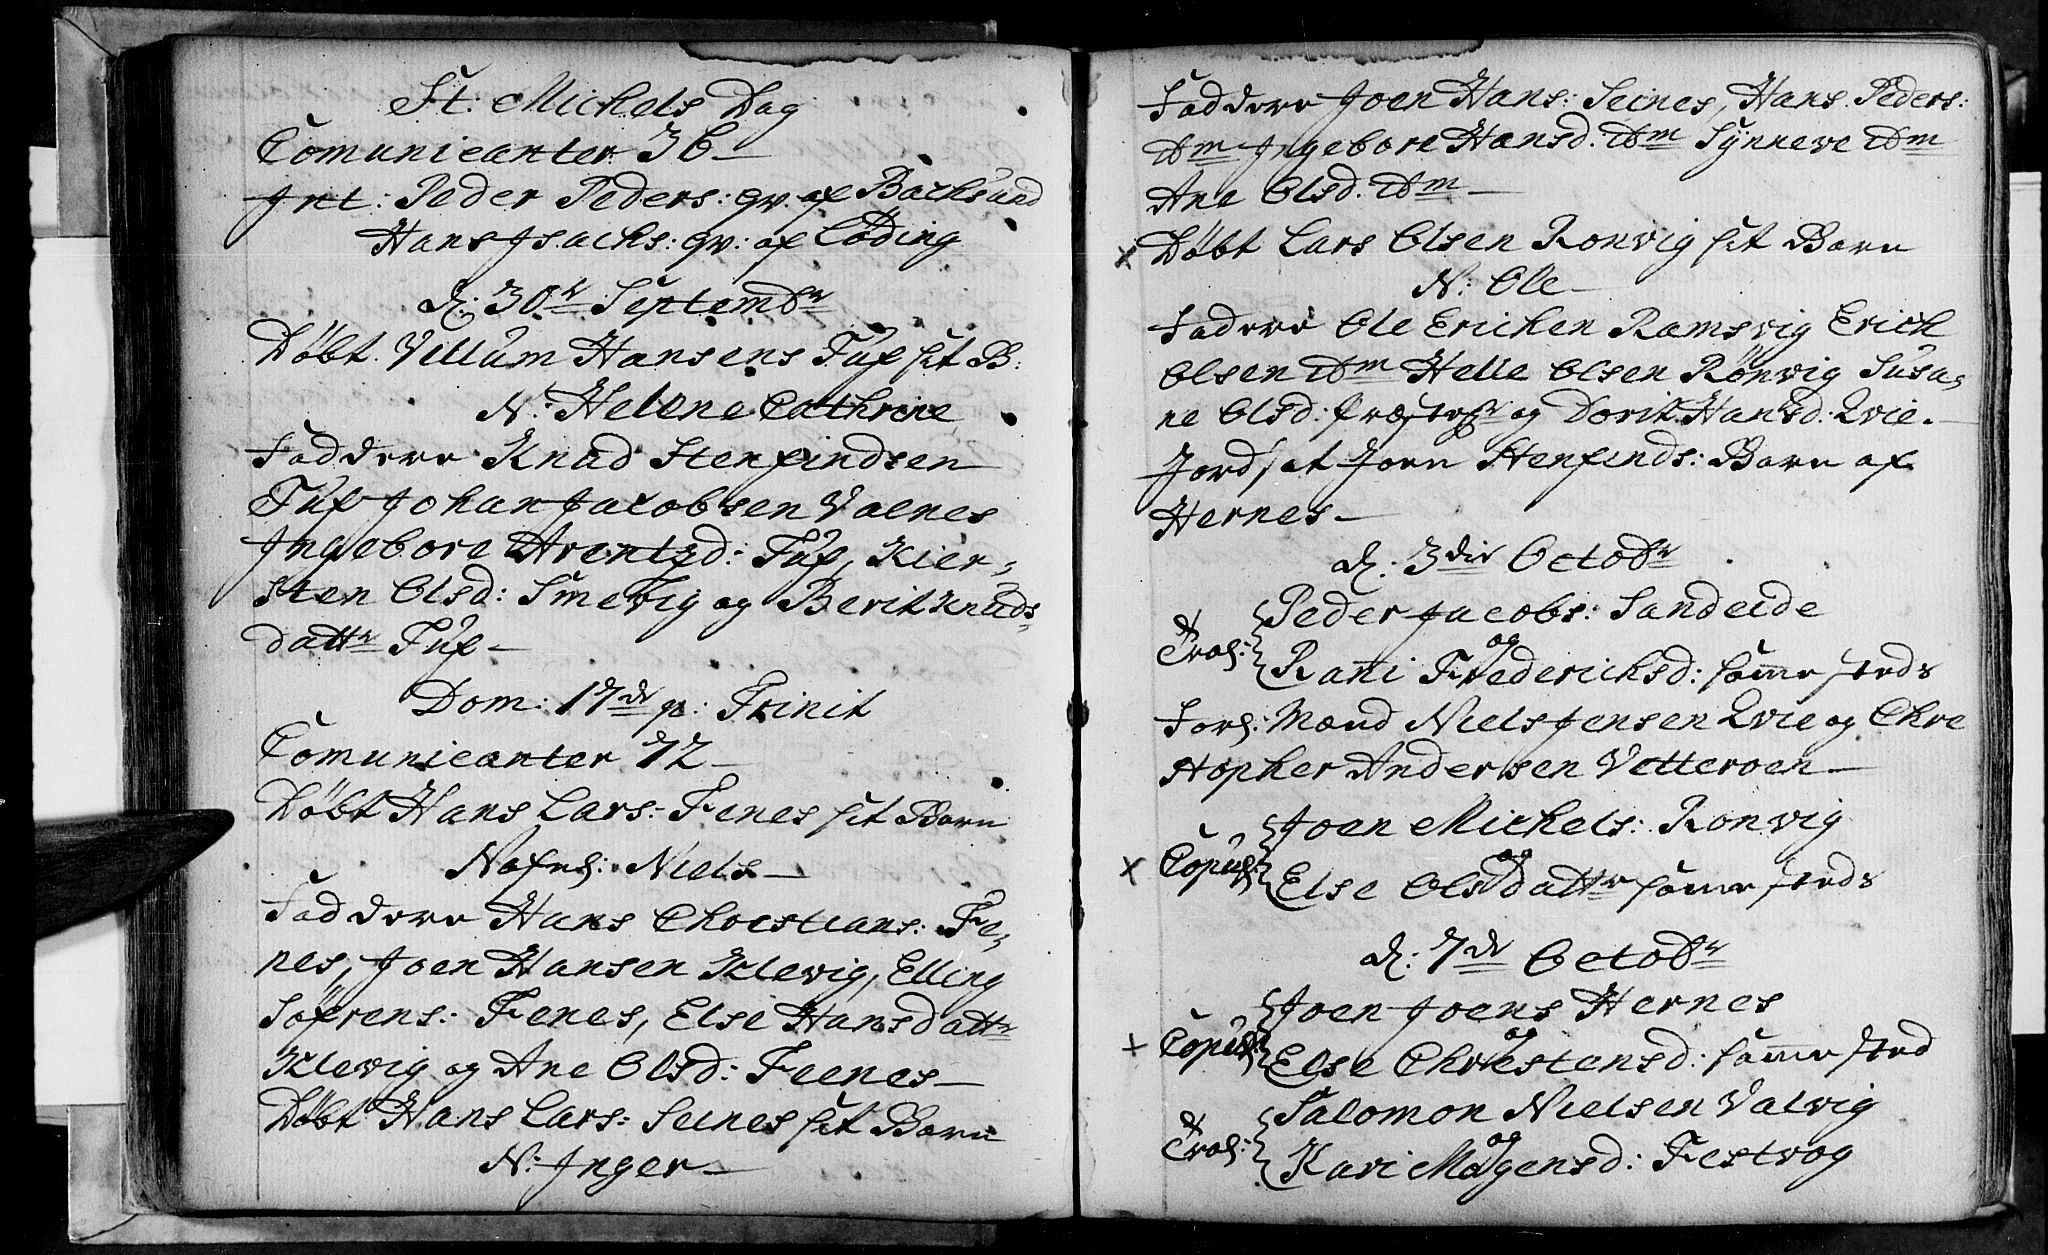 St: Michels Dag
Comunicanter 36
Int: Peder Peders: gv: af Backsund
Hans Isachs: gv: af Løding
d: 30te Septembr
Døbt Villum Hansens Tuf sit B:
N: Helene Cathrine
Faddere Knud Stenfindsen
Tuf Johan Jacobsen Valnes
Ingebore Arentzd: Tuf, Kier-
sten Olsd: Smevig og Berit Knuds-
dattr Tuf
Dom: 17de p: Trinit
Comunicanter 72
Døbt Hans Lars: Fenes sit Barn
Nafnl: Niels
Faddere Hans Chrestians: Fe-
nes, Joen Hansen Klevig, Elling
Søfrens: Fenes, Else Hansdattr
Klevig og Ane Olsd: Feenes
Døbt Hans Lars: Seines sit Barn
N: Inger
Faddere Joen Hans: Seines, Hans Peders:
Dm Ingebore Hansd: Dm Synneve Dm
Ane Olsd. Dm
Døbt Lars Olsen Ronvig sit Barn
N: Ole
Fadere Ole Ericksen Ramsvig Erich
Olsen Dm Helle Olsen Rønvig Susa-
ne Olsd: og Dorit Hansd: Qvie.
Jordsat Joen Stenfinds: Barn af
Hernes
d: 3die Octobr
Trol: Peder Jacobs: Sandeide
og
Rani Frederichsd: samme steds
Forl: Mænd Niels Jensen Qvie og Chre
stopher Andersen Vetterøen
Copul: Joen Michels: Ronvig
og
Else Olsdattr samme steds
d: 7de Octobr
Copul: Joen Joens Hernes
og
Else Chrestensd: samme sted
Trol: Salomon Nielsen Valvig
og
Kari Mogensd: Festvog